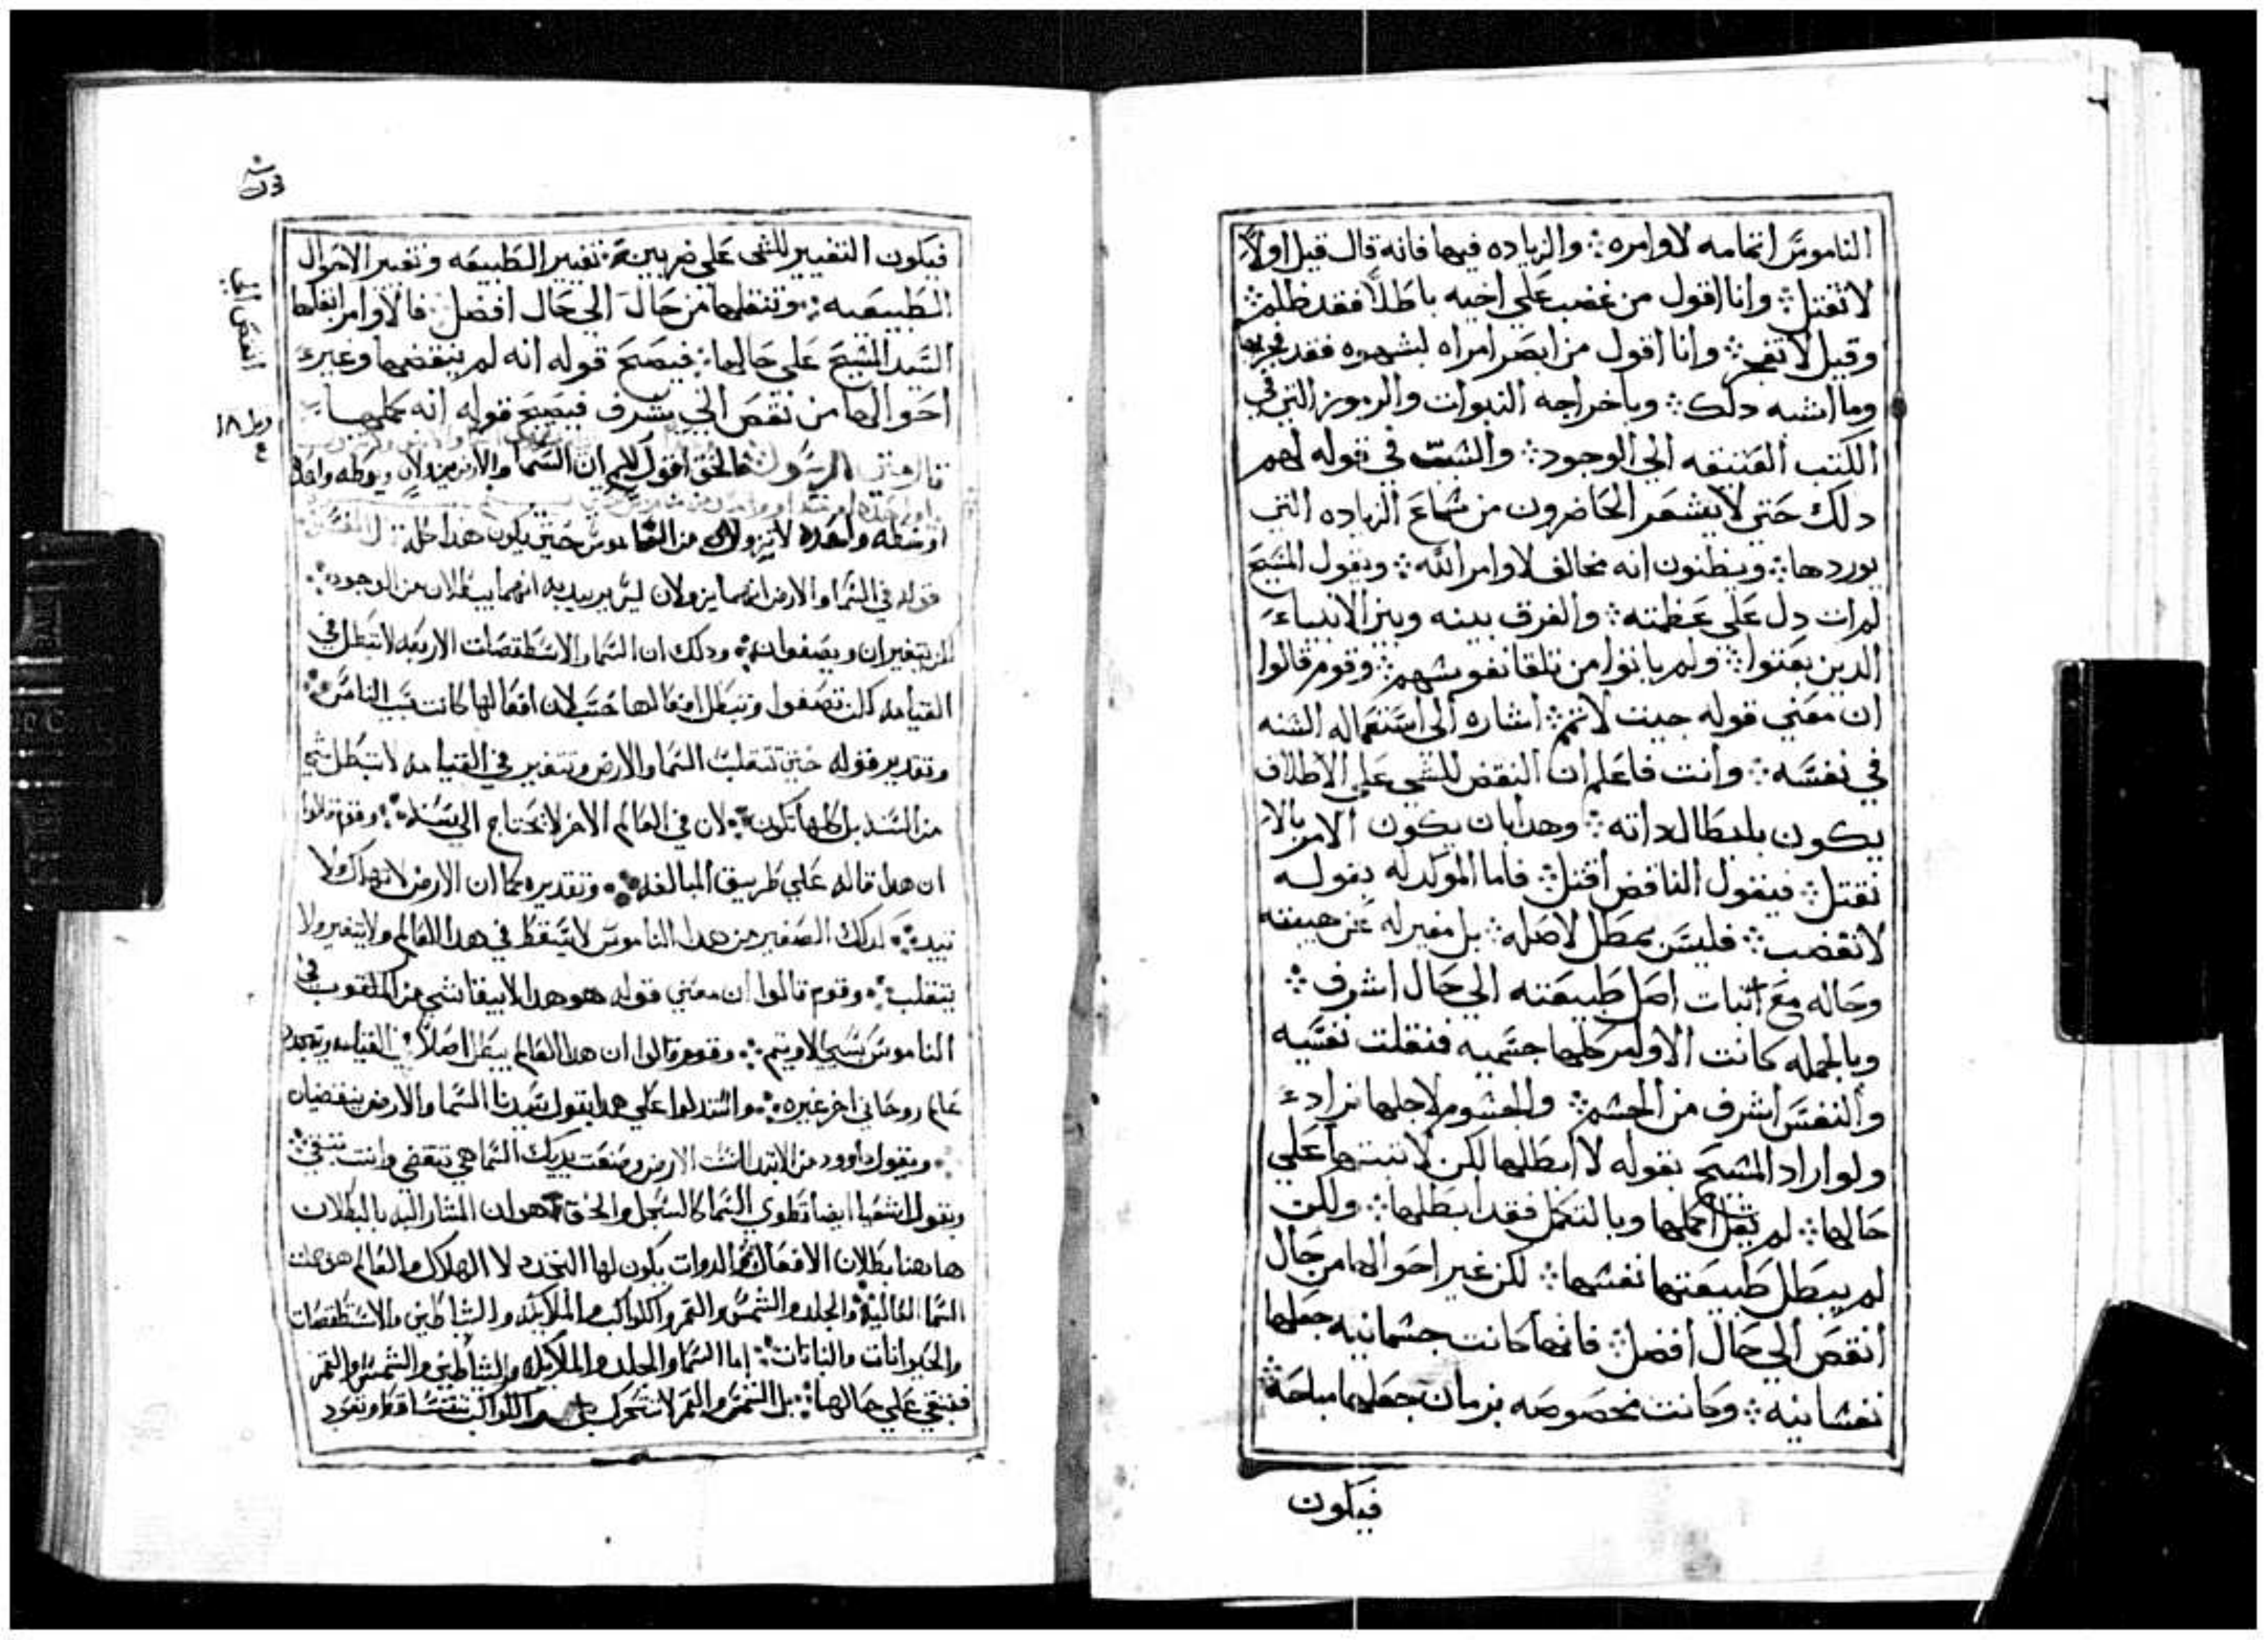 الناموس اتمامه لاوامره ⁘ والزياده فيها فانه قال قيل اولاً
لا تقتل ⁘ وانا اقول من غضب علي اخيه باطلاً فقد ظلم ⁘
وقيل لا تفجر ⁘ وانا اقول من ابصر امراه لشهوه فقد فجر بها
وما اشبه دلك ⁘ وباخراجه النبوات والرموز التي في
الكتب العتيقه الي الوجود ⁘ والسبب في قوله لهم
دلك حتي لا يقشعر الحاضرون من سماع الزياده التي
يوردها ⁘ ويظنون انه مخالف لاوامر الله ⁘ وبقول المسيح
لم ات دل علي عظمته ⁘ والفرق بينه وبين الانبياء
الدين بعتوا ⁘ ولم ياتوا من تلقا نفوسهم ⁘ وقوم قالوا
ان معني قوله جيت لاتمم ⁘ اشاره الي استعماله السنه
في نفسه ⁘ وانت فاعلم ان النقض للشي علي الاطلاق
يكون بابطال داته ⁘ وهدا بان يكون الامر بالا
تقتل ⁘ فيقول الناقض اقتل ⁘ فاما الموكد له بقوله
لا تغضب ⁘ فليس بمطل لاصله ⁘ بل مغير له عن هييته
وحاله مع اتبات اصل طبيعته الي حال اشرف ⁘
وبالجمله كانت الاوامر كلها جسميه فنقلت نفسيه
والنفس اشرف من الجسم ⁘ والجسوم لاجلها تراد
ولو اراد المسيح بقوله لا ابطلها لكن لا تبتها علي
حالها ⁘ لم يقل اكملها وبالتكمل فقد ابطلها ⁘ ولكن
لم يبطل طبيعتها نفسها ⁘ لكن غير احوالها من حال
انقص الي حال افضل ⁘ فانها كانت جسمانيه جعلها
نفسانيه ⁘ وكانت مخصوصه بزمان جعلها مباحة ⁘
فيكون
فيكون التغيير للشي علي ضربين ⁘ تغيير الطبيعه وتغيير الاحوال
الطبيعيه ⁘ وتنقلها من حال الي حال افضل ⁘ فالاوامر
السيد المسيح علي حالها ⁘ فيصح قوله انه لم ينقضها وغير
احوالها من نقص الي شرف فيصح قوله انه كملها
الرسول الحق اقول لكم ان السما والارض يزولان
واحده لا تزول من الناموس حتي يكون هدا كله
قوله في السما والارض انهما يزولان ليس يريد به انهما يبطلان من الوجود ⁘
يتغيران ويصفوان ⁘ ودلك ان السما والاسطقصات الاربعه لا تبطل في
القيامه لكن تصفوا وتبطل افعالها حسب لان افعالها كانت بسبب الناس ⁘
وتقدير قوله حتي تتقلب السما والارض وتتغير في القيامه لا تبطل شي
من السنه بل كلها تكون ⁘ لان في العالم الاخر لا يحتاج الي سنه ⁘ وقوم قالوا
ان هدا قاله علي طريق المبالغه ⁘ وتقديره كما ان الارض لا تهلك ولا
تبيد ⁘ كدلك الصغير من هدا الناموس لا يسقط في هدا العالم ولا يتغير ولا
يتقلب ⁘ وقوم قالوا ان معني قوله هو هدا لا يبقا شي من المكتوب في
الناموس بسببي الا ويتم ⁘ وقوم قالوا ان هدا العالم يبطل اصلاً في القيامه ويتجدد
عالم روحاني اخر غيره ⁘ واستدلوا علي هدا بقول سيدنا السما والارض ينقضيان
وبقول داوود من الابتدا اسست الارض وصنعت يديك السما هي تنقضي وانت تبقي ⁘
وبقول اشعيا ايضا تطوي السما كالسجل والحق هو ان المشار اليه بالبطلان
هاهنا بطلان الافعال والدوات يكون لها التجدد لا الهلاك والعالم هو
السما العاليه والجلد والشمس والقمر والكواكب والملايكه والشاطين والاسطقصات
والحيوانات والنباتات ⁘ اما السما والجلد والملايكه والشاطين والشمس والقمر
فتبقي علي حالها ⁘ بل الشمس والقمر لا تتحرك والكواكب تتساقط وتعود